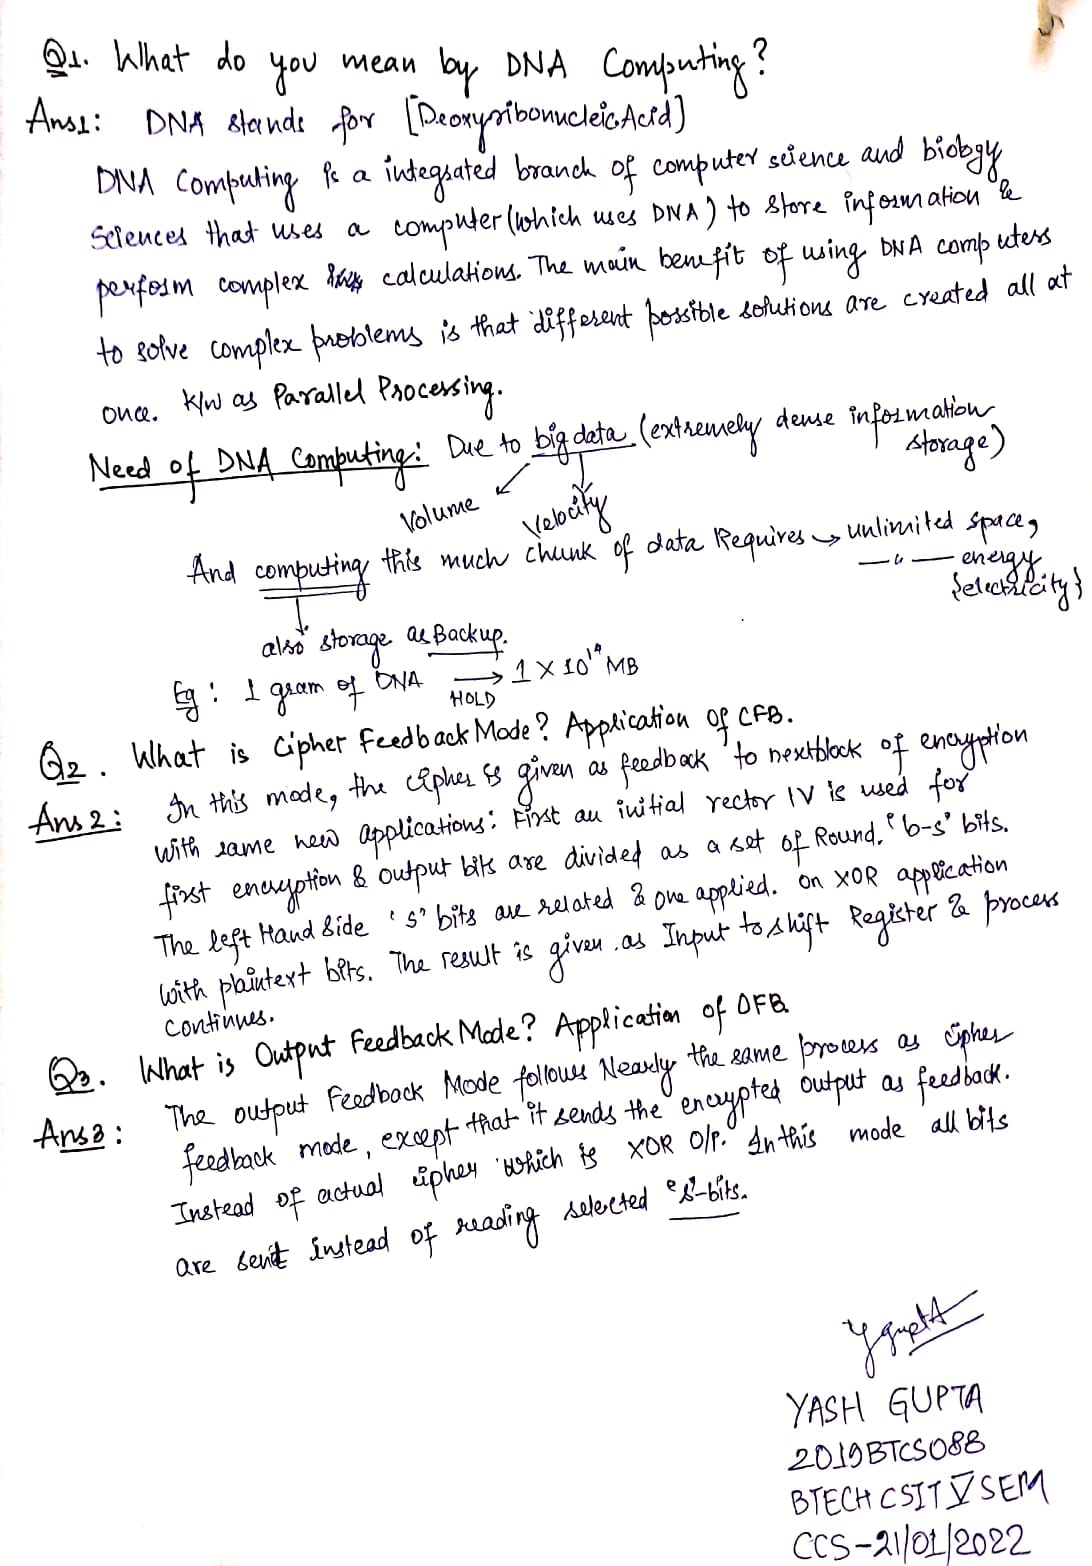 Q1. What do you mean by DNA Computing?
Ans1: DNA stands for [Deoxyribonucleic Acid]
DNA Computing is a integrated branch of computer science and biology
Sciences that uses a computer (which uses DNA) to store information &
perform complex calculations. The main benefit of using DNA computers
to solve complex problems is that different possible solutions are created all at
once. K/w as Parallel Processing.
Need of DNA Computing: Due to big data (extremely dense information
storage)
Volume Velocity
And computing this much chunk of data Requires → unlimited space,
—〃— energy
{electricity}
also storage as Backup.
Eg: 1 gram of DNA → 1 X 10¹⁴ MB
HOLD
Q2. What is Cipher Feedback Mode? Application of CFB.
Ans2: In this mode, the cipher is given as feedback to nextblock of encryption
with same new applications: First an initial vector IV is used for
first encryption & output bits are divided as a set of Round. 'b-s' bits.
The left Hand Side 's' bits are related & one applied. on XOR application
with plaintext bits. The result is given as Input to shift Register & process
continues.
Q3. What is Output Feedback Mode? Application of OFB
Ans3: The output Feedback Mode follows Nearly the same process as cipher
feedback mode, except that it sends the encrypted output as feedback.
Instead of actual cipher which is XOR O/P. In this mode all bits
are sent instead of reading selected 's'-bits.
YGuptA
YASH GUPTA
2019BTCS088
BTECH CSIT V SEM
CCS-21/01/2022